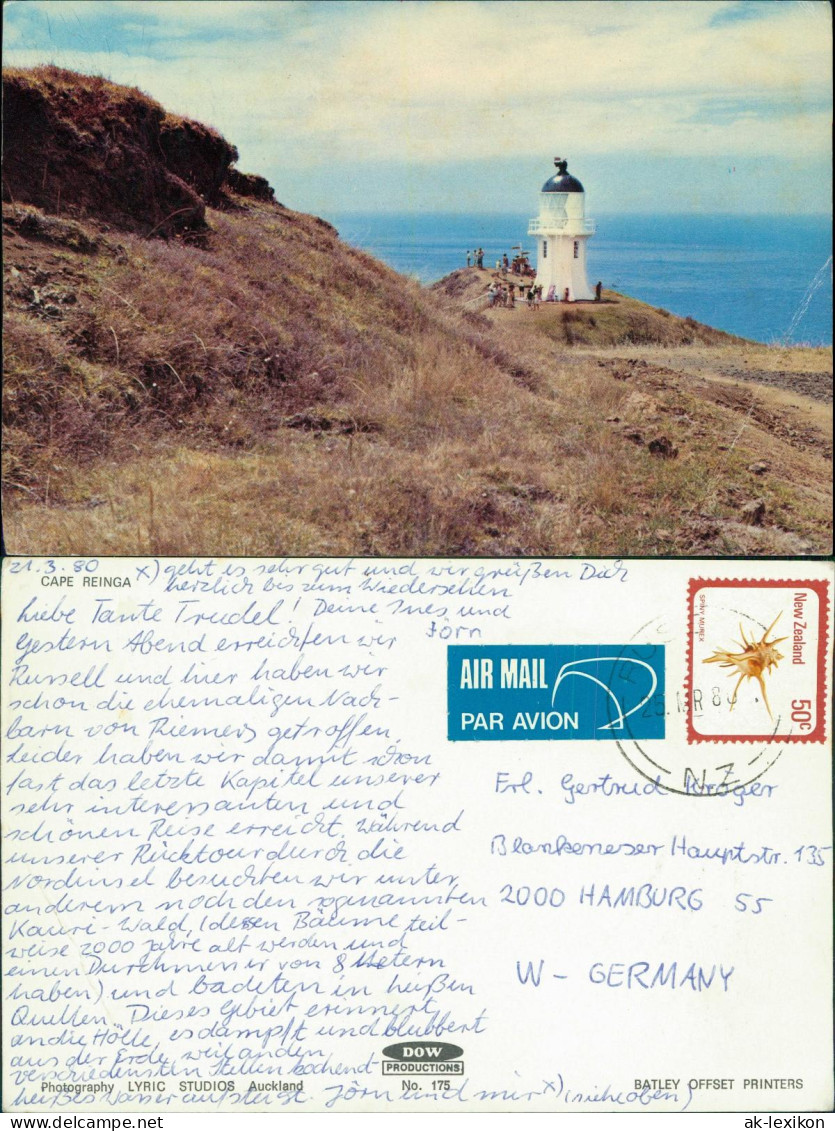 21.3.80 x) geht es sehr gut und wir grüßen Dich
CAPE REINGA herzlich bis zum Wiedersehen
Liebe Tante Trudel! Deine Ines und
Jörn
Gestern Abend erreichten wir
Russell und hier haben wir
schon die ehemaligen Nach-
barn von Riemers getroffen.
Leider haben wir damit schon
fast das letzte Kapitel unserer
sehr interessanten und
schönen Reise erreicht. Während
unserer Rücktour durch die
Nordinsel besuchten wir unter
anderem noch den sogenannten
Kauri-Wald, (dessen Bäume teil-
weise 2000 Jahre alt werden und
einen Durchmesser von 8 Metern
haben) und badeten in heißen
Quellen. Dieses Gebiet erinnert
an die Hölle, es dampft und blubbert
aus der Erde, weil an den
verschiedensten Stellen kochend
heißes Wasser aufsteigt. Jörn und mir x) (siehe oben)
AIR MAIL
PAR AVION
New Zealand
SPINY MUREX
50c
NZ
Frl. Gertrud Kröger
Blankeneser Hauptstr. 135
2000 HAMBURG 55
W - GERMANY
DOW
PRODUCTIONS
No. 175
Photography LYRIC STUDIOS Auckland
BATLEY OFFSET PRINTERS
www.delcampe.net
ak-lexikon